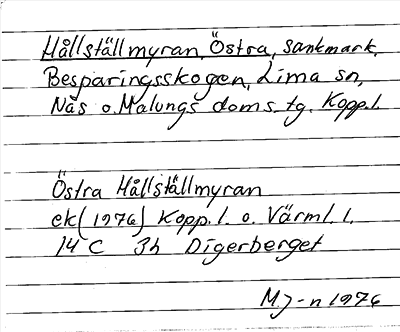 Hållställmyran, Östra, sankmark,
Besparingsskogen, Lima sn,
Näs o. Malungs doms. tg. Kopp. l.
Östra Hållställmyran
ek (1976) Kopp. l. o. Värml. l.
14 C 3h Digerberget
MJ-n 1976